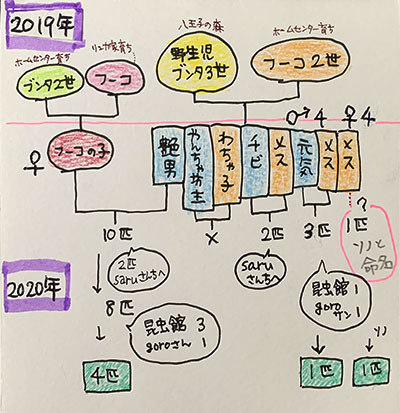 2019年
ホームセンター育ち
ブンタ2世
リュカ家育ち
フーコ
八王子の森
野生児
ブンタ3世
ホームセンター育ち
フーコ2世
♂4 ♀4
♀
フーコの子
艶男
やんちゃ坊主
わちゃ子
チビ
メス
元気
メス
メス
10匹
×
2匹
3匹
?
1匹
ソノと
命名
2匹
saruさんちへ
saru
さんちへ
2020年
8匹
昆虫館 3
goroさん 1
昆虫館 1
goro
サン 1
ソノ
4匹
1匹
1匹